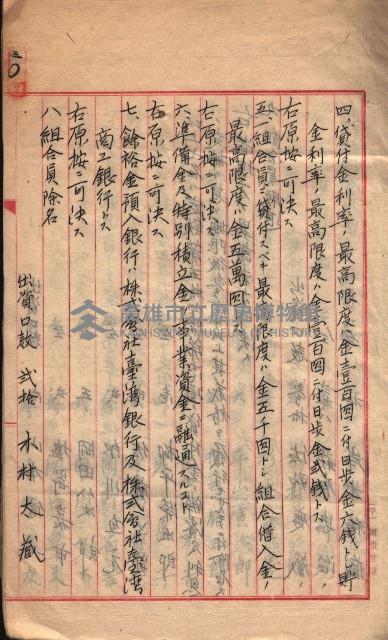 四、貸付金利率ノ最高限度ハ金壹百円ニ付日歩金六錢トシ貯
金利率ノ最高限度ハ金壹百円ニ付日歩金弐錢トス
右原按ニ可決ス
五、組合員ニ貸付スベキ最高限度ハ金五千円トシ組合借入金ノ
最高限度ハ金五萬円トス
右原按ニ可決ス
六、準備金及特別積立金ヲ事業資金ニ融通スルコト
右原按ニ可決ス
七、餘裕金預入銀行ハ株式会社臺灣銀行及株式会社臺湾
商工銀行トス
右原按ニ可決ス
八組合員除名
出資口数 弐拾 木村大藏
高雄市立歷史博物館